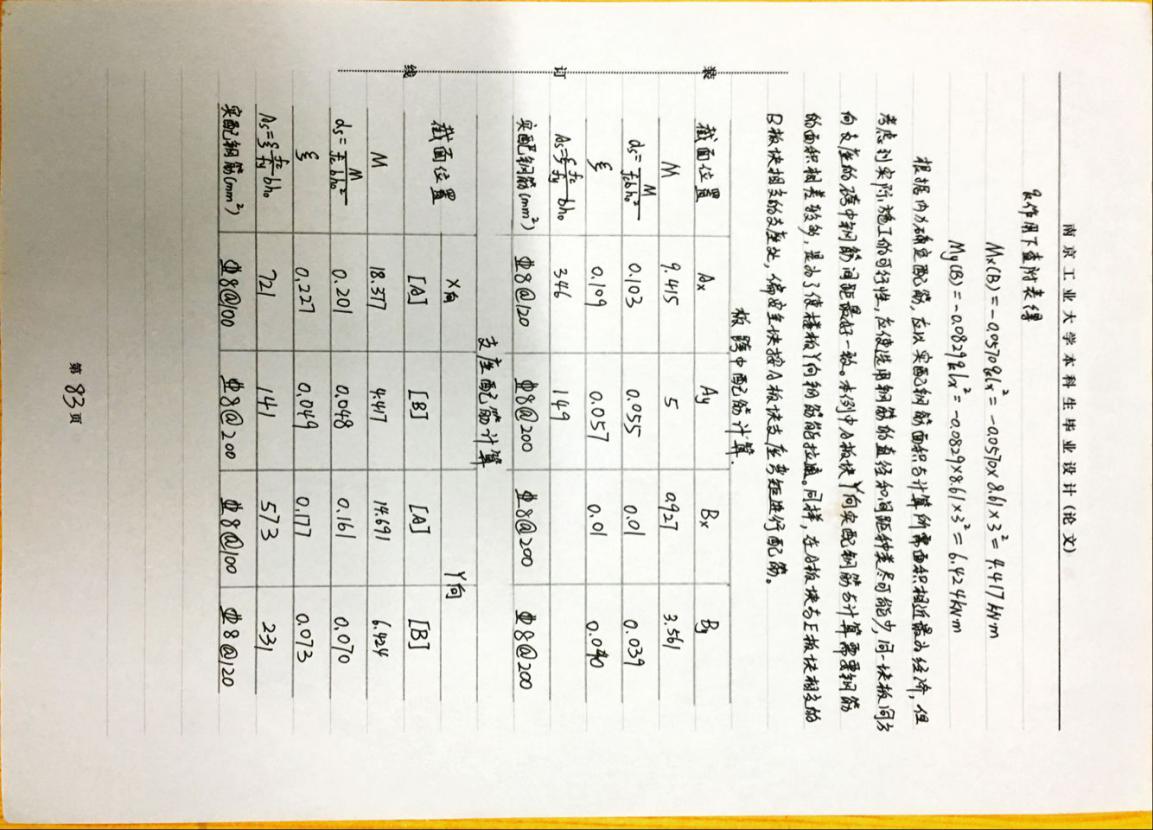 南京工业大学本科生毕业设计(论文)
q作用下查附表得
Mx(B)=-0.0570qlx²=-0.0570×8.61×3²=4.417kN·m
My(B)=-0.0829qlx²=-0.0829×8.61×3²=6.424kN·m
根据内力确定配筋,应以实配钢筋面积与计算所需面积相近最为经济,但
考虑到实际施工的可行性,应使选用钢筋的直径和间距种类尽可能少,同一块板同方
向支座的跨中钢筋间距最好一致。本例中A板块Y向实配钢筋与计算需要钢筋
的面积相差较多,是为了使楼板Y向钢筋能拉通。同样,在A板块与E板块相交的
B板块相交的支座处,偏安全地按A板块支座弯矩进行配筋。
板跨中配筋计算.
截面位置 Ax Ay Bx By
M 9.415 5 0.927 3.561
αs=M/fcbh₀² 0.103 0.055 0.01 0.039
ξ 0.109 0.057 0.01 0.040
As=ξ fc/fy bh₀ 346 149
实配钢筋(mm²) Φ8@120 Φ8@200 Φ8@200 Φ8@200
支座配筋计算
截面位置 X向 Y向
[A] [B] [A] [B]
M 18.377 4.417 14.691 6.424
αs=M/fcbh₀² 0.201 0.048 0.161 0.070
ξ 0.227 0.049 0.177 0.073
As=ξ fc/fy bh₀ 721 141 573 231
实配钢筋(mm²) Φ8@100 Φ8@200 Φ8@100 Φ8@120
装
订
线
第83页